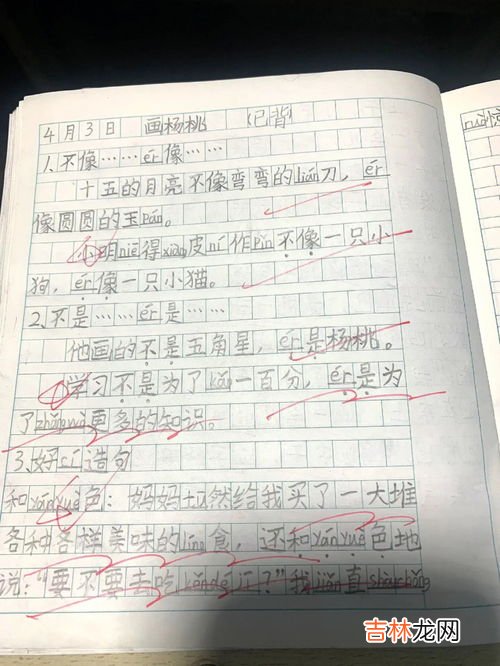 4月3日 画杨桃 (已背)
1.不像……ér像……
十五的月亮不像弯弯的lián刀,ér
像圆圆的玉pán。
小明niē得xiàng皮ní作pǐn不像一只小
狗,ér像一只小猫。
2.不是……ér是……
他画的不是五角星,ér是杨桃。
学习不是为了kǎo一百分,ér是为
了zhǎngwò更多的知识。
3.好词造句
和yányuè色:妈妈居然给我买了一大堆
各种各样美味的líng食,还和yányuè色地
说:"要不要去吃kěndéjī?"我jiǎn直shòuchǒng
吉林龙网
www.jl0yw.com